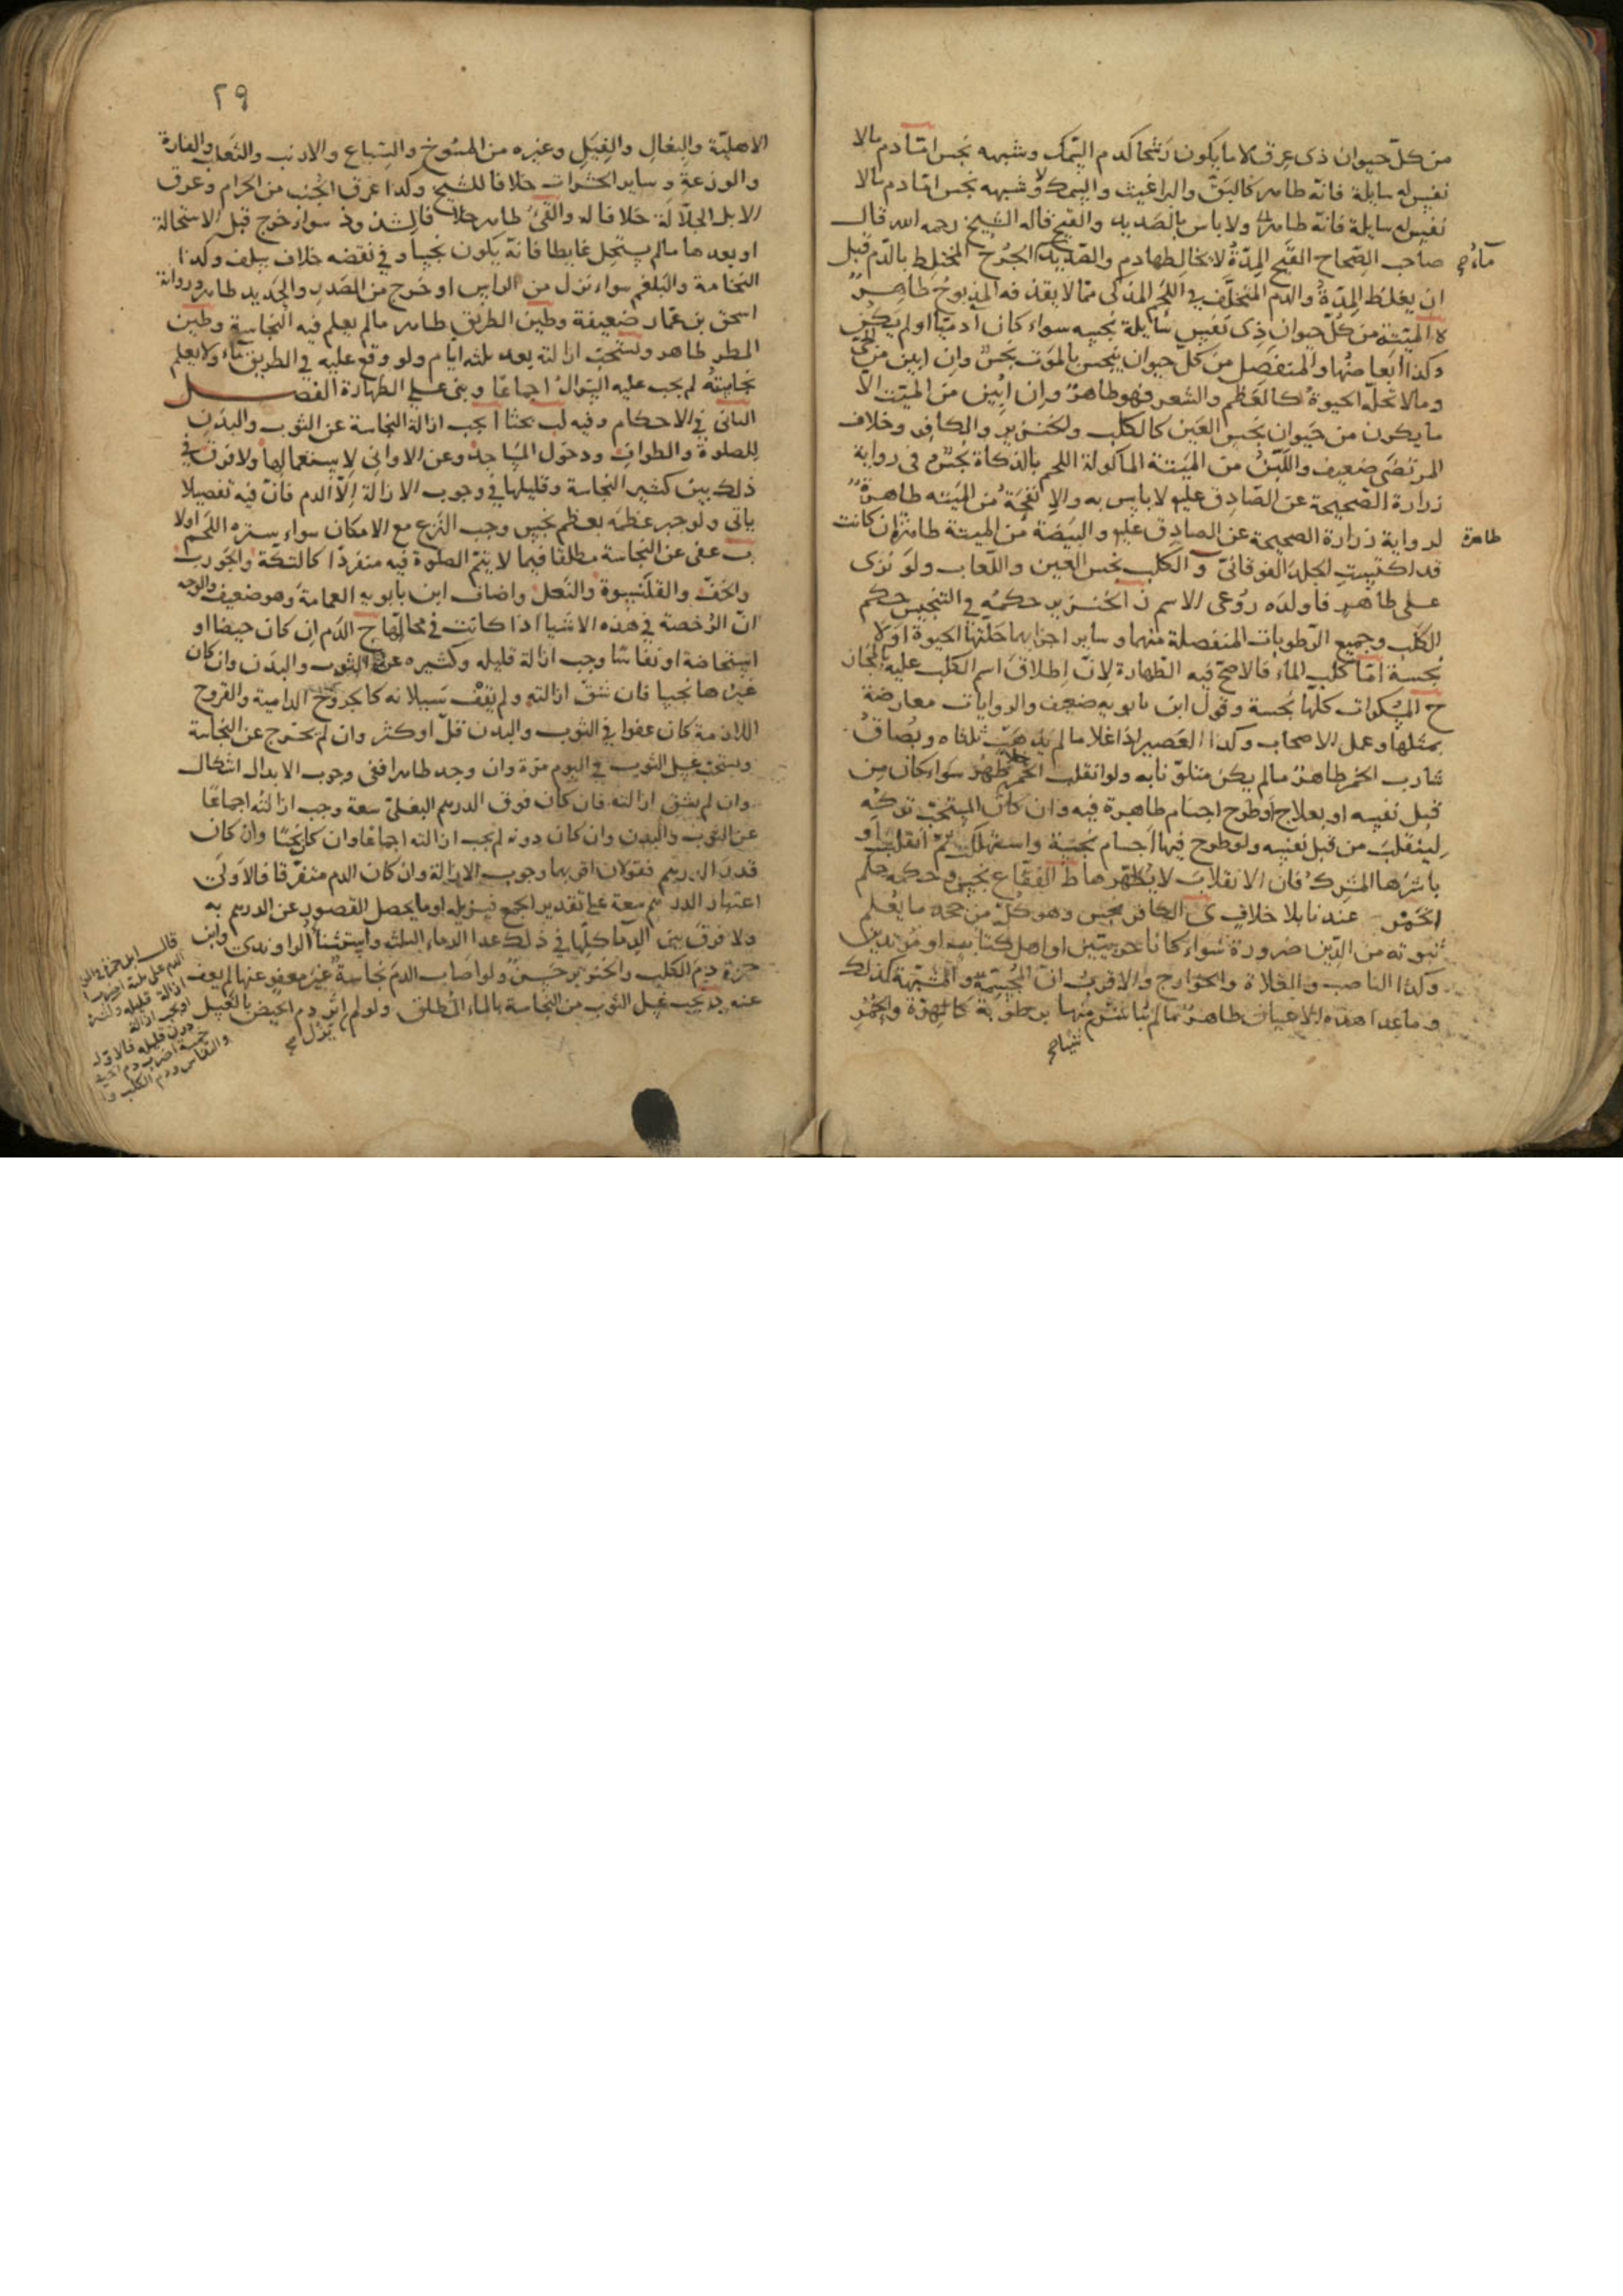 من كلّ حيوان ذى عِرق لا ما يكون رَشحًا كدم السّمك وشبهه نجس امّا دم ما لا
نفس له سايلة فانّه طاهر كالبَقّ والبراغيث والسمك وشبهه نجس امّا دم ما لا
نفس له سايلة فانّه طاهر ولا باس بالصديد والقيح قاله الشيخ رحمه الله قال
صاحب الصّحاح القَيح المِدّةُ لا يخالطها دم والصّديد الجُرح المختلط بالدّم قبل
ماءُ صح
ان يغلظ المِدّةُ والدم المتخلّف فى اللحم المذكى ممّا لا يقذفه المذبوح طاهرٌ
ه الميتة من كُلّ حيوان ذِى نَفسٍ سايلة نجسه سواء كان ادميّا او لم يكن
وكذا ابعاضُها والمنفصل من كلّ حيوان ينجس بالموت نجسٌ وان ابين من حىّ
وما لا تحلّه الحيوة كالعَظم والشعر فهو طاهرٌ وان ابِينَ من الميّت الّا
ما يكون من حَيوان نجس العَين كالكلب والخنزير والكافر وخلاف
المرتضى ضعيف واللّبَن من الميتة الماكولة اللحم بالذكاة نجسٌ وفى رواية
زرارة الصّحيحة عن الصّادق عليه لا باس به والإنفَحَةُ من الميته طاهرةٌ
لرواية زرارة الصحيحة عن الصادق عليه والبَيضة من الميتة طاهرة ان كانت
طاهرة
قد اكتست الجلد الفوقانىّ و الكلب نجس العين واللّعاب ولو نزى
على طاهرٍ فاولده رُوعى الاسم ز الخنزير حكمُه فى التنجيس حكم
الكلب وجميع الرّطوبات المنفصلة منهما وساير اجزايهما حَلّتها الحيوة اوّلا
نجسة امّا كلب الماء فالاصحّ فيه الطّهارة لانّ إطلاقَ اسم الكلب عليه بالمجاز
ح المسكرات كلّها نجسة وقول ابن بابويه ضعيف والروايات معارضة
بمثلها وعمل الاصحاب وكذا العَصير اذا غلا ما لم يذهب ثلثاه وبُصاقُ
شارب الخمر طاهرٌ ما لم يكن متلوّنا به ولو انقلب الخمر خلا طهُر سواء كان من
قبل نفسه او بعلاج او طرح اجسام طاهرة فيه وان كان المستحبّ تركه
لينقلب من قبل نفسِه ولو طرح فيها اجسام نجسَة واستهلكت ثمّ انقلبت او
باشرَها المشرك فانّ الانقلابَ لا يطهّرها ط الفقّاع نجسٌ وحكمه حكم
الخمر عندنا بلا خلافٍ ى الكافر نجس وهو كلّ من جحد ما يُعلم
ثبوته من الدِّين ضرورة سَواء كانا حربيّين او اهل كتاب او مرتدين
وكذا الناصب والغلاة والخوارج والاقربُ انّ المجسّمة والمشبّهة كذلك
وما عدا هذه الاعيان طاهرٌ ما لم تباشرَ منها برطوبة كالهِرّة والحُمُر
شيئا صح
٢٩
الاهليّة والبغال والفيل وغيره من المسوخ والسّباع والارنب والثعلب والفارة
والوزغة وساير الحشرات خلافًا للشيخ وكذا عرق الجُنب من الحرام وعرق
الابل الجلّالة خلافا له والقئُ طاهر خلافا لمن شذ سواءٌ خرج قبل الاستحالة
او بعدها ما لم يستحل غايطا فانّه يكون نجسا وفى نقضه خلاف سلف وكذا
النخامة والبلغم سواء نزل من الراس او خرج من الصّدر والحديد طاهر ورواية
اسحق بن عمّار ضعيفة وطين الطريق طاهر ما لم يعلم فيه النجاسة وطين
المطر طاهر ويستحبّ ازالته بعد ثلثة ايام ولو وقع عليه فى الطريق ماءٌ ولا يعلم
نجاسته لم يجب عليه السّوالُ اجماعًا وبنى على الطهارة الفصل
الثانى فى الاحكام وفيه لب بحثًا ا يجب ازالة النجاسة عن الثوب والبدن
للصلوة والطواف ودخول المساجد وعن الاوانى لاستعمالها ولا فرق فى
ذلك بين كثير النجاسة وقليلها فى وجوب الازالة إلّا الدم فانّ فيه تفصيلا
ياتى ولو جبر عظمَه بعظم نجس وجب النزع مع الامكان سواء ستره اللحم اولا
ب عفى عن النجاسة مطلقًا فيما لا يتمّ الصلوة فيه منفردًا كالتكّة والجورب
والخفّ والقلنسوة والنّعل واضاف ابن بابويه العمامة وهو ضعيف والوجه
انّ الرخصة فى هذه الاشيا اذا كانت فى محالّها ج الدّم ان كان حيضا او
استحاضة او نفاسًا وجب ازالة قليله وكثيره عن الثوب والبدن وان كان
غيرها نجسا فان شقّ ازالته ولم يقف سَيلانه كالجروح الدامية والقروح
اللازمة كان عفوا فى الثوب والبدن قلّ او كثر وان لم يخرج عن النجاسة
ويستحبّ غسل الثوب فى اليوم مرّة وان وجد طاهرا ففى وجوب الابدال اشكال
وان لم يشق ازالته فان كان فوق الدرهم البغلىّ سعة وجب ازالته اجماعًا
عن الثوب والبدن وان كان دونه لم يجب ازالته اجماعًا وان كان نجسًا وان كان
قدر الدرهم فقولان اقربهما وجوب الازالة وان كان الدم متفرّقًا فالاولى
اعتبار الدرهم سعة على تقدير الجمع فيزيله او ما يحصل القصور عن الدرهم به
ولا فرق بين الدّما كلّها فى ذلك عدا الدماء الثلث واستثنا الراوندى وابن
حمزة دم الكلب والخنزير حسنٌ ولو اصاب الدم نجاسة غير معفو عنها لم يعف
عنه د يجب غسل الثوب من النجاسة بالماء المطلق ولو لم اثر دم الحيض بالغسل
يزل صح
قال ابن حمزة
الدم على ثلثة اضرب
ازالة قليله وكثيره
ويجب ازالة
دون قليله فالاول
خمسة اضرب دم الحيض
والنفاس ودم الكلب